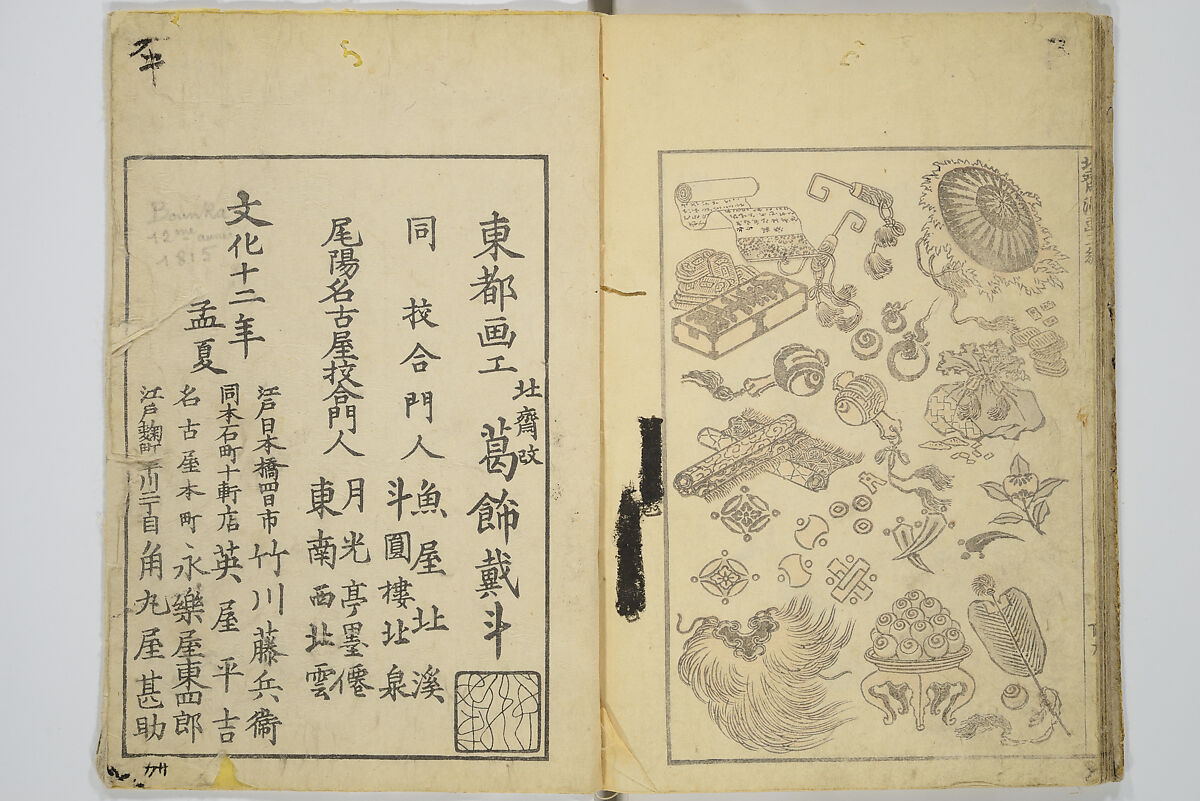 東都画工 北齋改 葛飾戴斗
同 挍合門人 魚屋北溪
斗圓樓北泉
尾陽名古屋挍合門人 月光亭墨僊
東南西北雲
文化十二年
孟夏
江戸日本橋四日市 竹川藤兵衞
同本石町十軒店 英屋平吉
名古屋本町 永樂屋東四郎
江戸麹町平川二丁目 角丸屋甚助
Bounka
12me année
1815